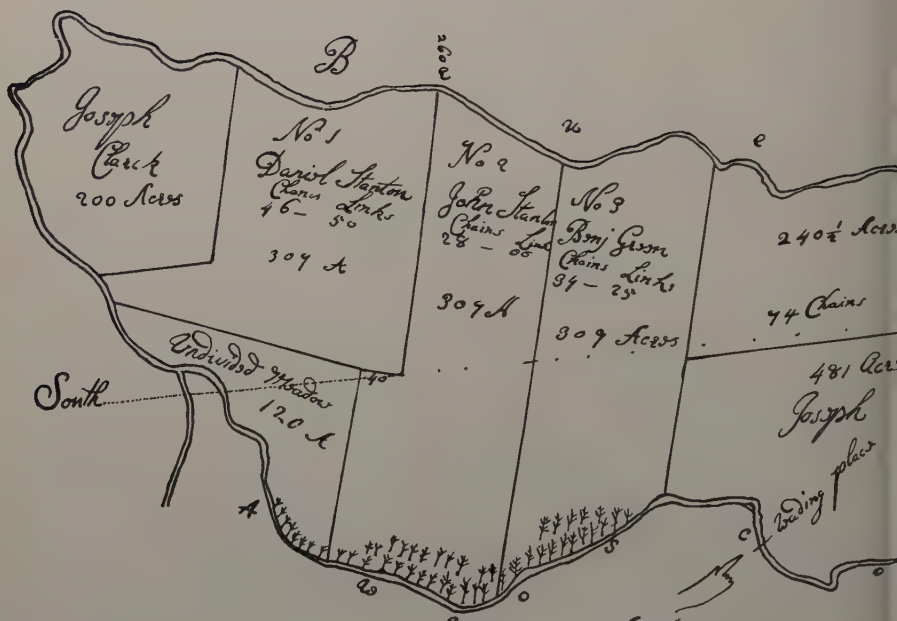 B
260
a
u
e
Joseph
Clarck
200 Acres
No 1
Daniel Stanton
Chains Links
46 - 50
307 A
No 2
John Stanton
Chains Link
28 - 00
307 A
No 3
Benj Green
Chains Links
34 - 25
309 Acres
240½ Acres
74 Chains
481 Acre
Joseph
wading place
Undivided Meadow
120 A
40
South
A
q
o
S
C
o